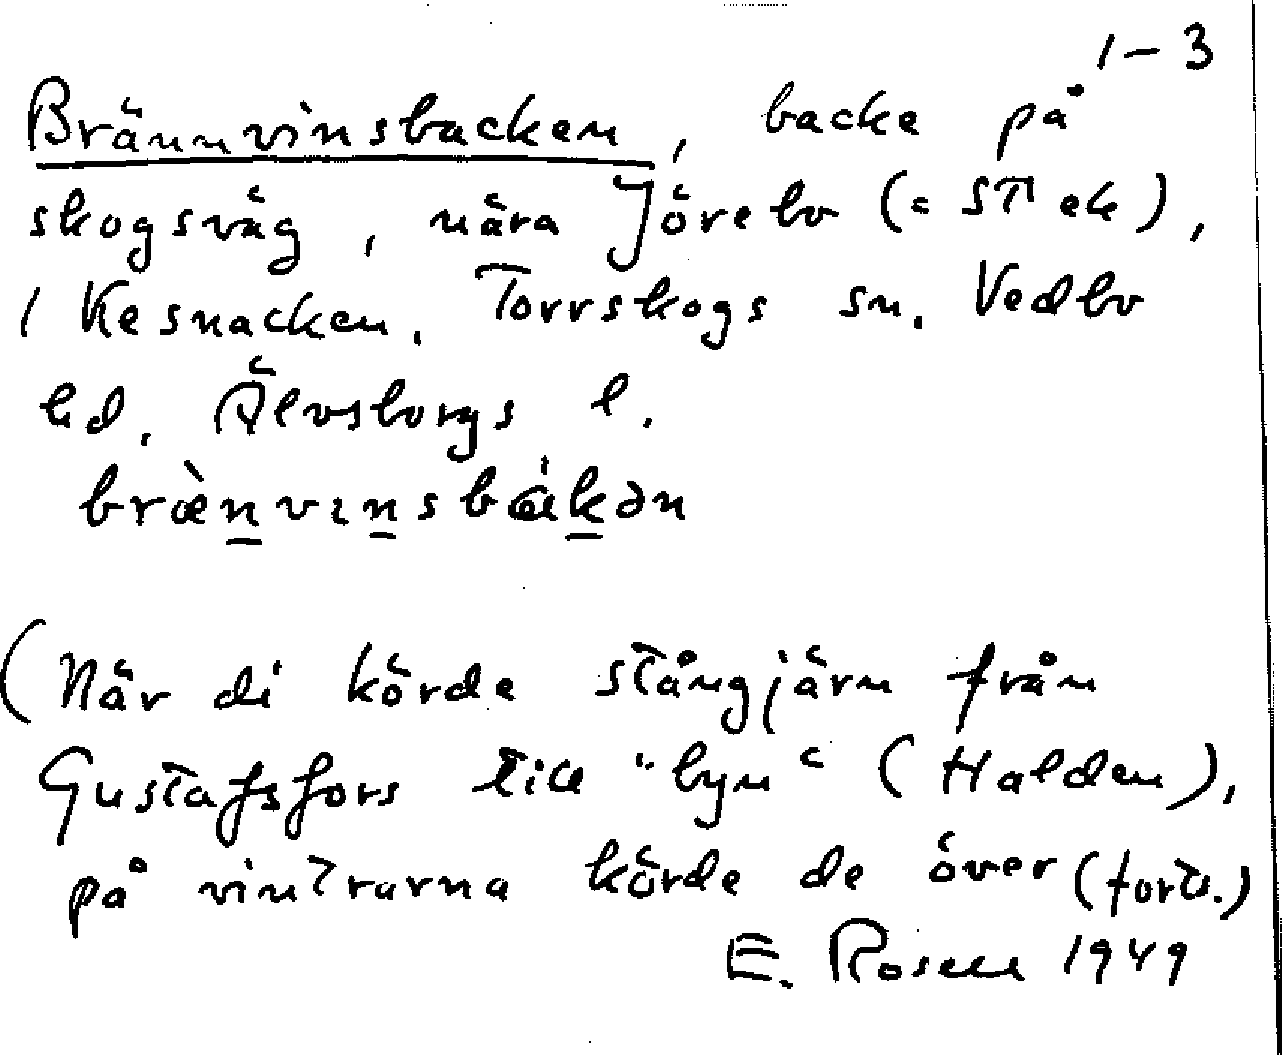 1–3
Brännvinsbacken, backe på
skogsväg, nära Jörebo (= STl ek),
/ Kesnacken. Torrskogs sn. Vedbo
hd. Älvsborgs l.
bræ̀nvɩnsbákən
(När di körde stångjärn från
Gustafsfors till "byn" (Halden),
på vintrarna körde de över (forts.)
E. Rosell 1949